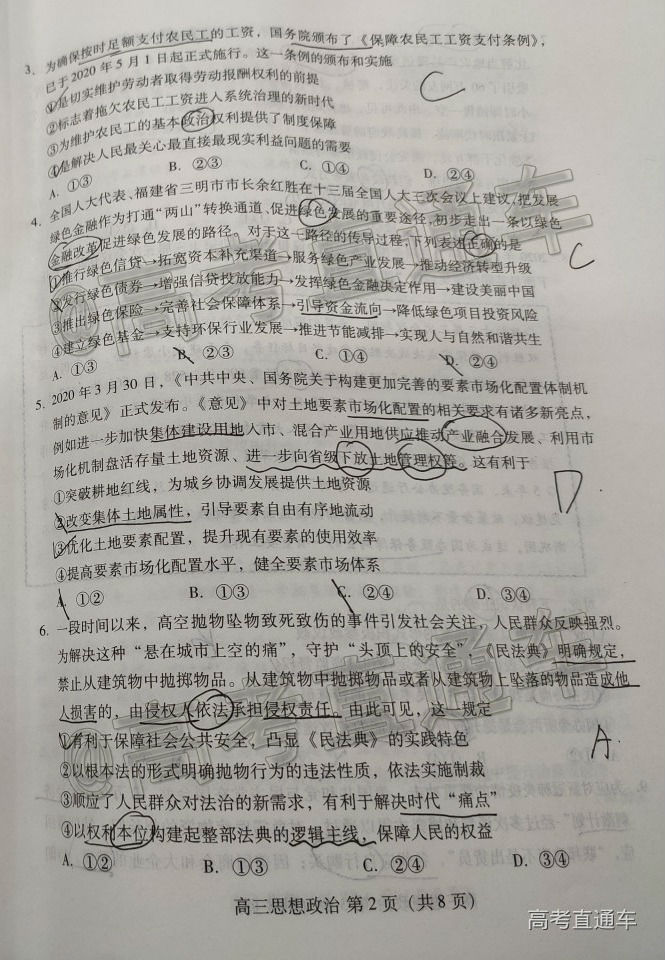 3. 为确保按时足额支付农民工的工资，国务院颁布了《保障农民工工资支付条例》，
已于2020年5月1日起正式施行。这一条例的颁布和实施
①是切实维护劳动者取得劳动报酬权利的前提
②标志着拖欠农民工工资进入系统治理的新时代
③为维护农民工的基本政治权利提供了制度保障
④是解决人民最关心最直接最现实利益问题的需要
A. ①③ B. ②③ C. ①④ D. ②④
C
4. 全国人大代表、福建省三明市市长余红胜在十三届全国人大三次会议上建议，把发展
绿色金融作为打通“两山”转换通道、促进绿色发展的重要途径，初步走出一条以绿色
金融改革促进绿色发展的路径。对于这一路径的传导过程，下列表述正确的是
①推行绿色信贷→拓宽资本补充渠道→服务绿色产业发展→推动经济转型升级
②发行绿色债券→增强信贷投放能力→发挥绿色金融决定作用→建设美丽中国
③推出绿色保险→完善社会保障体系→引导资金流向→降低绿色项目投资风险
④建立绿色基金→支持环保行业发展→推进节能减排→实现人与自然和谐共生
A. ①③ B. ②③ C. ①④ D. ②④
C
5. 2020年3月30日，《中共中央、国务院关于构建更加完善的要素市场化配置体制机
制的意见》正式发布。《意见》中对土地要素市场化配置的相关要求有诸多新亮点，
例如进一步加快集体建设用地入市、混合产业用地供应推动产业融合发展、利用市
场化机制盘活存量土地资源、进一步向省级下放土地管理权等。这有利于
①突破耕地红线，为城乡协调发展提供土地资源
②改变集体土地属性，引导要素自由有序地流动
③优化土地要素配置，提升现有要素的使用效率
④提高要素市场化配置水平，健全要素市场体系
A. ①② B. ①③ C. ②④ D. ③④
D
6. 一段时间以来，高空抛物坠物致死致伤的事件引发社会关注，人民群众反映强烈。
为解决这种“悬在城市上空的痛”，守护“头顶上的安全”，《民法典》明确规定，
禁止从建筑物中抛掷物品。从建筑物中抛掷物品或者从建筑物上坠落的物品造成他
人损害的，由侵权人依法承担侵权责任。由此可见，这一规定
①有利于保障社会公共安全，凸显《民法典》的实践特色
②以根本法的形式明确抛物行为的违法性质，依法实施制裁
③顺应了人民群众对法治的新需求，有利于解决时代“痛点”
④以权利本位构建起整部法典的逻辑主线，保障人民的权益
A. ①② B. ①③ C. ②④ D. ③④
A.
高三思想政治 第2页（共8页）
@高考直通车
@高考直通车
高考直通车